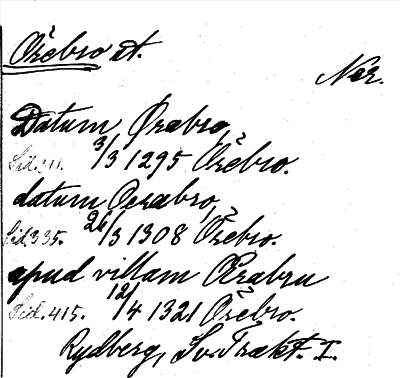 Örebro st.
Ner.
Datum Ørabro,
Sid. 11. 3/3 1295 Örebro.
datum Oerabro,
Sid. 335. 26/3 1308 Örebro.
apud villam Ørabru
Sid. 415. 12/4 1321 Örebro.
Rydberg, Sv. Trakt. I.